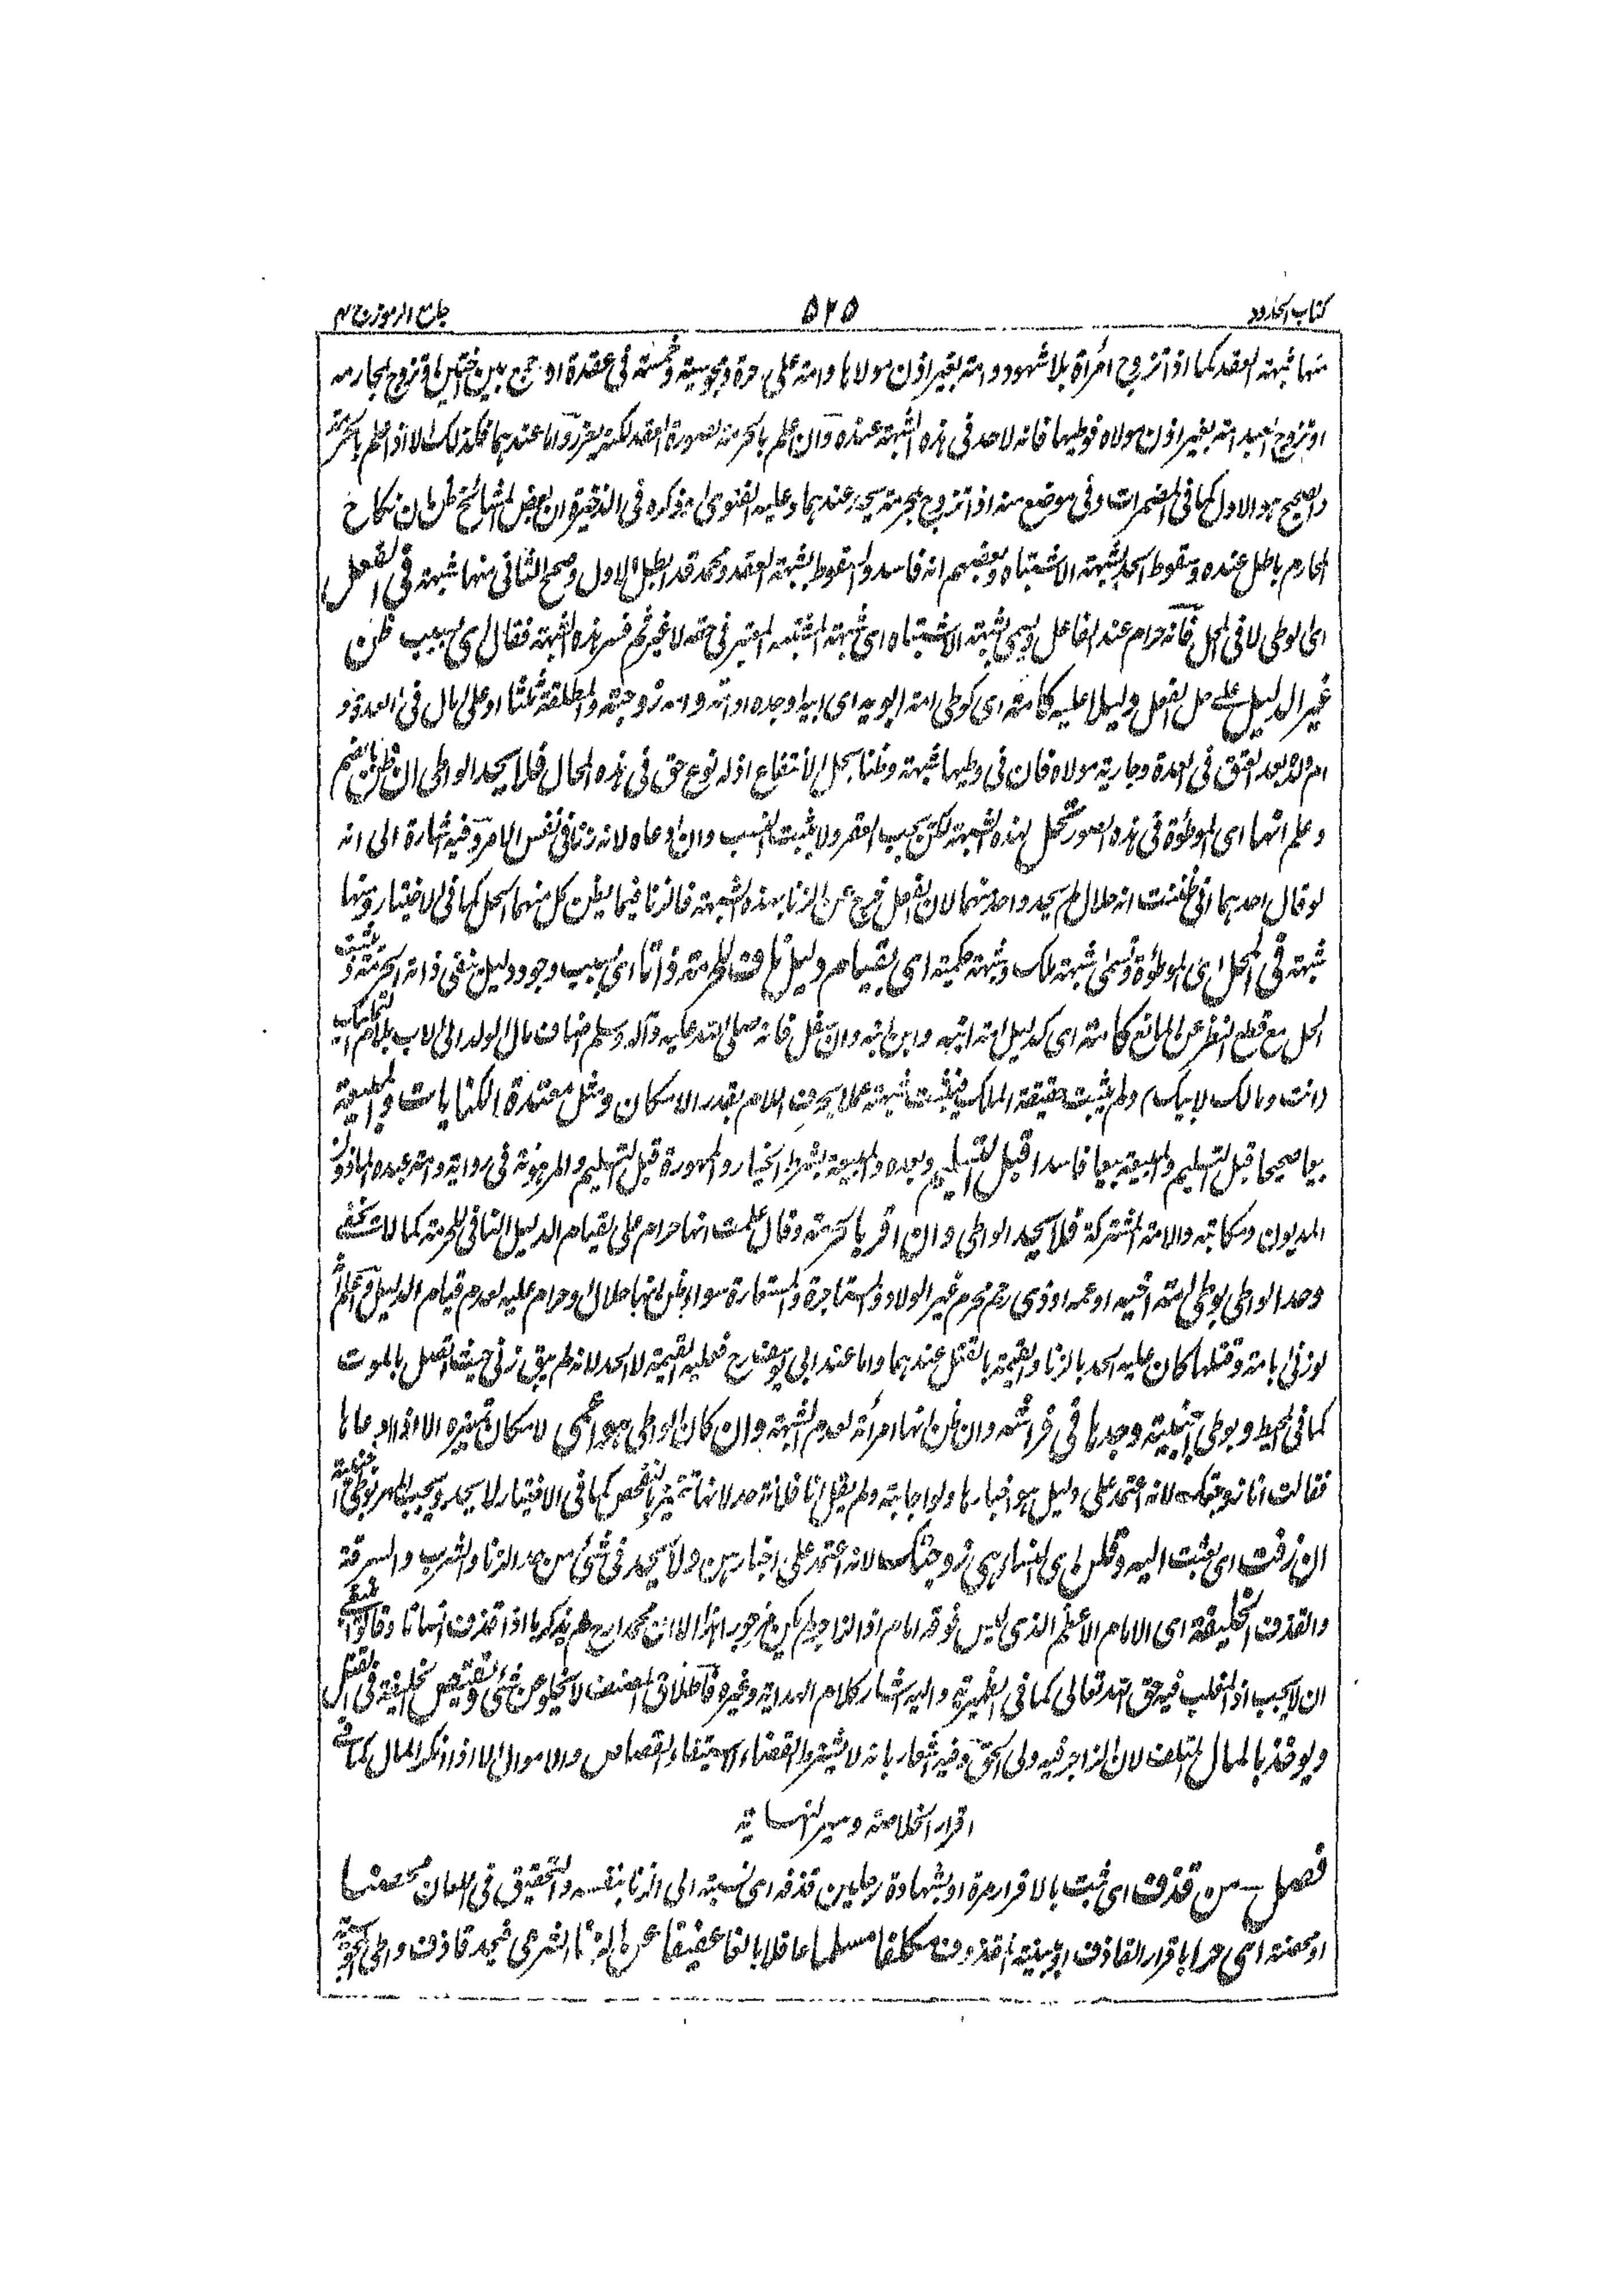 كتاب الحدود ٥٢٥ جامع الرموز ج ٢
منها شبهة العقد كما اذا تزوج امرأة بلا شهود و امة بغير اذن مولاها و امة على حرة و مجوسية و خمسة فى عقدة او جمع بين اختين او تزوج بمحارمه
او تزوج العبد امة بغير اذن مولاه فوطيها فانه لا حد فى هذه الشبهة عنده وان علم بالحرمة لصورة العقد لكنه يعزر واما عندهما فكذلك الا اذا علم بالحرمة
والصحيح هو الاول كما فى المضمرات وفى موضع منه اذا تزوج بمحرمة يحد عندهما وعليه الفتوى وذكره فى الذخيرة ان بعض المشائخ ظن ان نكاح
المحارم باطل عنده وسقوط الحد لشبهة الاشتباه وبعضهم انه فاسد والسقوط لشبهة العقد ومحمد قد ابطل الاول وصحح الثانى منها شبهة فى الفعل
اى الوطى لا فى المحل فانه حرام عند الفاعل ويسمى شبهة الاشتباه اى شبهة المشتبه المعتبر فى حقه لا غير ثم فسر هذه الشبهة فقال اى بسبب ظن
غير الدليل على حل الفعل دليلا عليه كامة اى كوطى امة ابويه اى ابيه او جده او امه وامة زوجته والمطلقة ثلثا او على مال فى العدة و
ام ولد بعد العتق فى العدة وجارية مولاه فان فى وطيها شبهة وظنا بحل الانتفاع اذ له نوع حق فى هذه المحال فلا يحد الواطى ان ظن
وعلم انها اى الموطوءة فى هذه الصور تحل لهذه الشبهة لكن يجب العقر ولا يثبت النسب وان ادعاه لانه زنا فى نفس الامر وفيه اشارة الى انه
لو قال احدهما انى ظننت انه حلال لم يحد واحد منهما لان الفعل خرج عن الزنا بهذه الشبهة فالزنا فيما يظن كل منهما الحل كما فى الاختيار ومنها
شبهة فى المحل اى الموطوءة وتسمى شبهة ملك وشبهة حكمية اى بقيام دليل ناف للحرمة ذاتا اى بسبب وجود دليل ينفى ذاته الحرمة ويثبت
الحل مع قطع النظر عن المانع كامة اى كدليل امة ابنه وابن ابنه وان سفل فانه صلى الله عليه وآله وسلم اضاف مال الولد الى الاب بلام التمليك
انت ومالك لابيك ولم يثبت حقيقة الملك فيثبت شبهة عملا بحرف اللام بقدر الامكان ومثل معتدة الكنايات والمبيعة
بيعا صحيحا قبل التسليم والمبيعة بيعا فاسدا قبل التسليم وبعده والمبيعة بشرط الخيار والممهورة قبل التسليم والمرهونة فى رواية وامة عبده الماذون
المديون ومكاتبه والامة المشتركة فلا يحد الواطى وان اقر بالحرمة وقال علمت انها حرام على لقيام الدليل النافى للحرمة كما لا يخفى
وحد الواطى بوطى امة اخيه او عمه او ذى رحم محرم غير الولاد والمستاجرة والمستعارة سواء ظن انها حلال او حرام عليه لعدم قيام الدليل
لو زنى بامة وقتلها كان عليه الحد بالزنا والقيمة بالقتل عندهما واما عند ابى يوسف رح فعليه القيمة لا الحد لانه لم يبق زنى حيث اتصل بالموت
كما فى المحيط وبوطى اجنبية وجدها فى فراشه وان ظن انها امرأته لعدم الشبهة وان كان الواطى هو اعمى لامكان تميزه الا اذا دعاها
فقالت انا زوجتك لانه اعتمد على دليل هو اخبارها ولو اجابته ولم يقل انا فلانة حد لانها تتميز بالفحص كما فى الاختيار لا يحد ويجب المهر بوطى اجنبية
ان زفت اى بعثت اليه وقلن اى النساء هى زوجتك لانه اعتمد على اخبارهن ولا يحد فى شئ من حد الزنا والشرب والسرقة
والقذف الخليفة اى الامام الاعظم الذى ليس فوقه امام اذ الزاجر لم يكن مزجورا الا ان محمدا رح لم يذكر ما اذا قذف انسانا وقالوا
ان لا يجب اذ المغلب فيه حق الله تعالى كما فى الظهيرية واليه اشار كلام الهداية وغيره فاطلاق المصنف لا يخلو عن شئ ويقتص الخليفة فى القتل
ويوخذ بالمال المتلف لان الزاجر فيه ولى الحق وفيه اشعار بانه لا يشترط القضاء لاستيفاء القصاص والاموال الا اذا انكر المال كما فى
اقرار الخلاصة وسير النهاية
فصل من قذف اى ثبت بالاقرار مرة او بشهادة رجلين قذفه اى نسبته الى الزنا بنفسه والتحقيق فى اللعان محصنا
او محصنة اى حرا باقرار القاذف او بينة المقذوف مكلفا مسلما عاقلا بالغا عفيفا عن الزنا الشرعى فيحد قاذف واطى